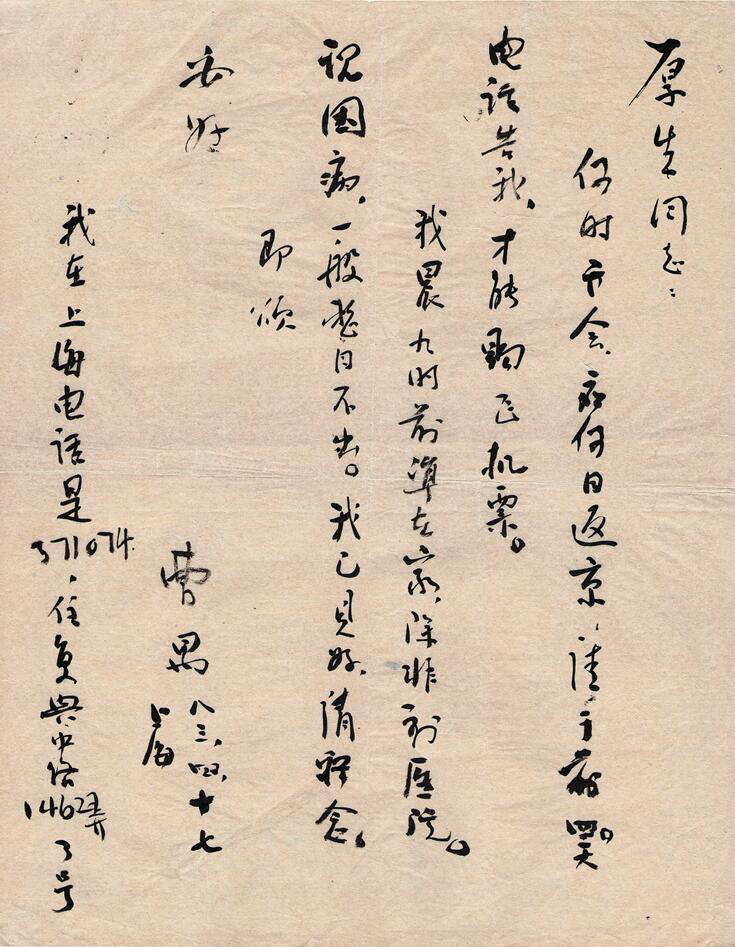 厚生同志：
何时开会，我何日返京，请于前四天
电话告我，才能购飞机票。
我晨九时前准在家，除非到医院。
现因病，一般整日不出。我已见好，请释念。
即颂
安好
曹禺 八三、四、十七
上海
我在上海电话是
371074，住复兴中路
1462弄3号